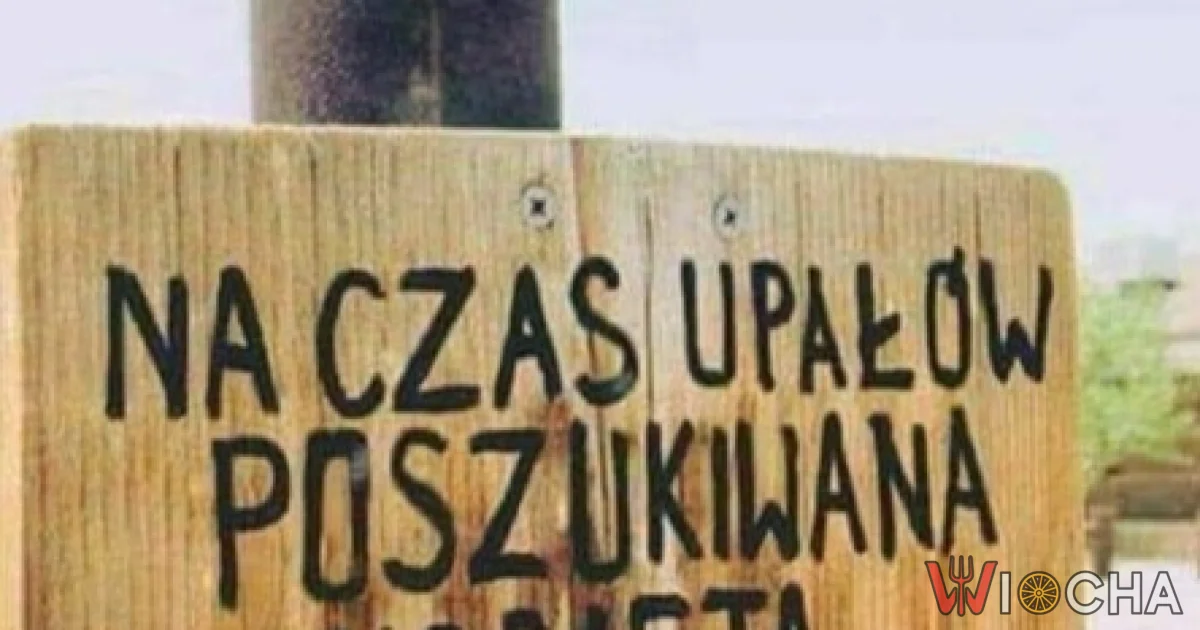 NA CZAS UPAŁÓW
POSZUKIWANA
WIOCHA